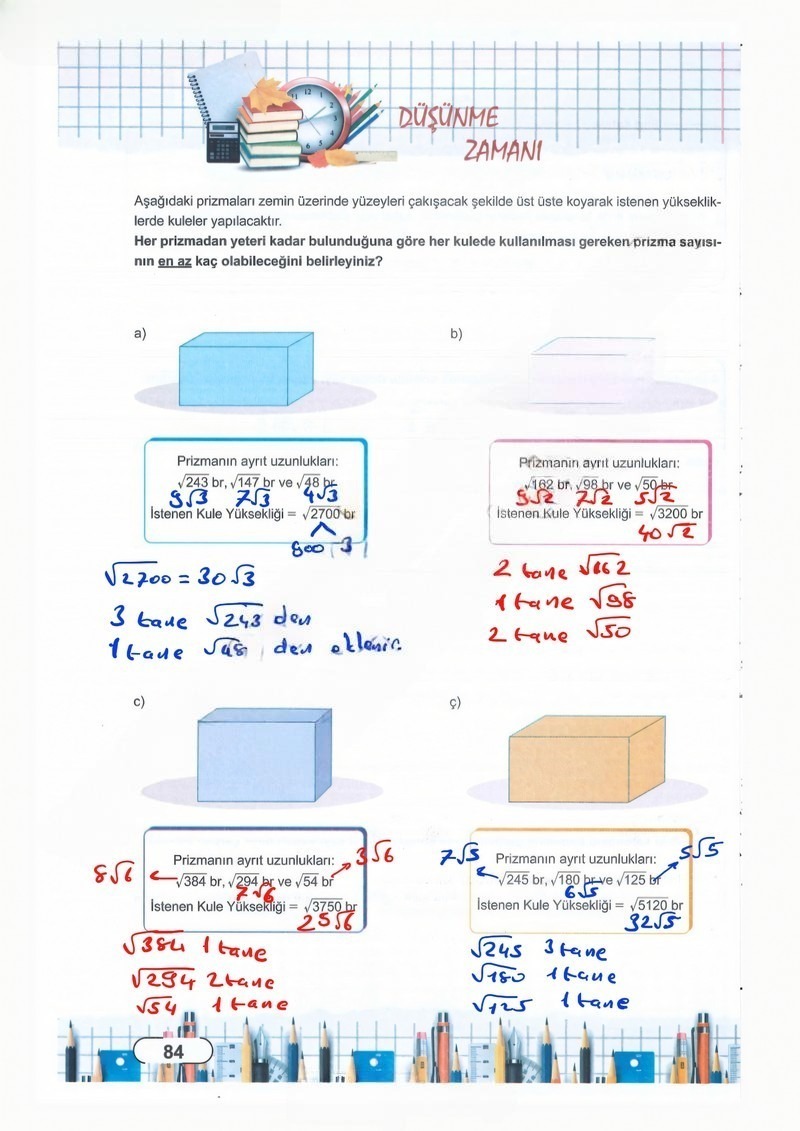 DÜŞÜNME
ZAMANI
Aşağıdaki prizmaları zemin üzerinde yüzeyleri çakışacak şekilde üst üste koyarak istenen yükseklik-
lerde kuleler yapılacaktır.
Her prizmadan yeteri kadar bulunduğuna göre her kulede kullanılması gereken prizma sayısı-
nın en az kaç olabileceğini belirleyiniz?
a)
Prizmanın ayrıt uzunlukları:
√243 br, √147 br ve √48 br
9√3 7√3 4√3
İstenen Kule Yüksekliği = √2700 br
900 3
√2700 = 30√3
3 tane √243 den
1 tane √48 den eklenir.
b)
Prizmanın ayrıt uzunlukları:
√162 br, √98 br ve √50 br
9√2 7√2 5√2
İstenen Kule Yüksekliği = √3200 br
40√2
2 tane √162
1 tane √98
2 tane √50
c)
Prizmanın ayrıt uzunlukları:
8√6 3√6
√384 br, √294 br ve √54 br
7√6
İstenen Kule Yüksekliği = √3750 br
25√6
√384 1 tane
√294 2 tane
√54 1 tane
ç)
7√5 Prizmanın ayrıt uzunlukları: 5√5
√245 br, √180 br ve √125 br
6√5
İstenen Kule Yüksekliği = √5120 br
32√5
√245 3 tane
√180 1 tane
√125 1 tane
84